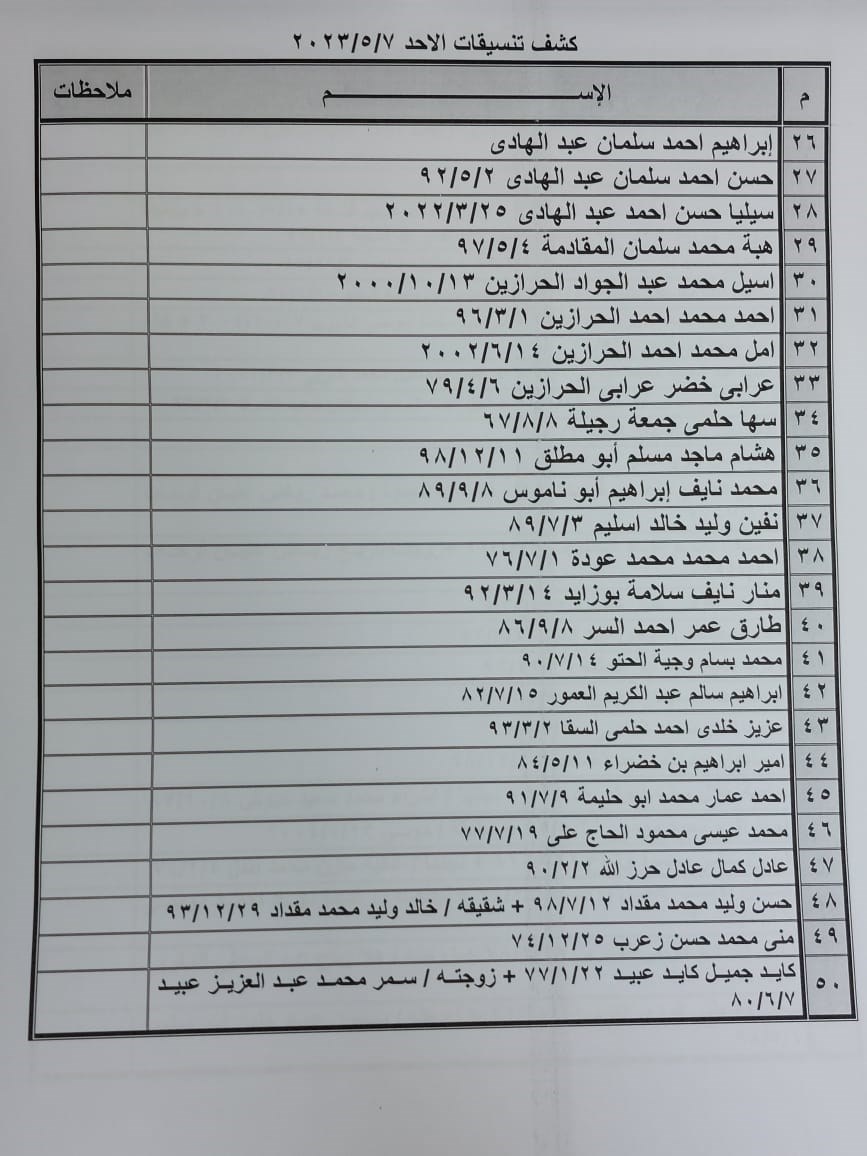 كشف تنسيقات الاحد ٢٠٢٣/٥/٧
م الإســـــــــم ملاحظات
٢٦ إبراهيم احمد سلمان عبد الهادى
٢٧ حسن احمد سلمان عبد الهادى ٩٢/٥/٢
٢٨ سيليا حسن احمد عبد الهادى ٢٠٢٢/٣/٢٥
٢٩ هبة محمد سلمان المقادمة ٩٧/٥/٤
٣٠ اسيل محمد عبد الجواد الحرازين ٢٠٠٠/١٠/١٣
٣١ احمد محمد احمد الحرازين ٩٦/٣/١
٣٢ امل محمد احمد الحرازين ٢٠٠٢/٦/١٤
٣٣ عرابى خضر عرابى الحرازين ٧٩/٤/٦
٣٤ سها حلمى جمعة رجيلة ٦٧/٨/٨
٣٥ هشام ماجد مسلم أبو مطلق ٩٨/١٢/١١
٣٦ محمد نايف إبراهيم أبو ناموس ٨٩/٩/٨
٣٧ نفين وليد خالد اسليم ٨٩/٧/٣
٣٨ احمد محمد محمد عودة ٧٦/٧/١
٣٩ منار نايف سلامة بوزايد ٩٢/٣/١٤
٤٠ طارق عمر احمد السر ٨٦/٩/٨
٤١ محمد بسام وجية الحتو ٩٠/٧/١٤
٤٢ ابراهيم سالم عبد الكريم العمور ٨٢/٧/١٥
٤٣ عزيز خلدى احمد حلمى السقا ٩٣/٣/٢
٤٤ امير ابراهيم بن خضراء ٨٤/٥/١١
٤٥ احمد عمار محمد ابو حليمة ٩١/٧/٩
٤٦ محمد عيسى محمود الحاج على ٧٧/٧/١٩
٤٧ عادل كمال عادل حرز الله ٩٠/٢/٢
٤٨ حسن وليد محمد مقداد ٩٨/٧/١٢ + شقيقه / خالد وليد محمد مقداد ٩٣/١٢/٢٩
٤٩ منى محمد حسن زعرب ٧٤/١٢/٢٥
٥٠ كايد جميل كايد عبيد ٧٧/١/٢٢ + زوجته / سمر محمد عبد العزيز عبيد
٨٠/٦/٧